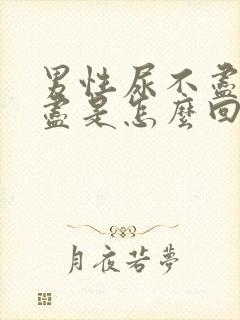 男性尿不盡
盡是怎麼回
月夜若夢